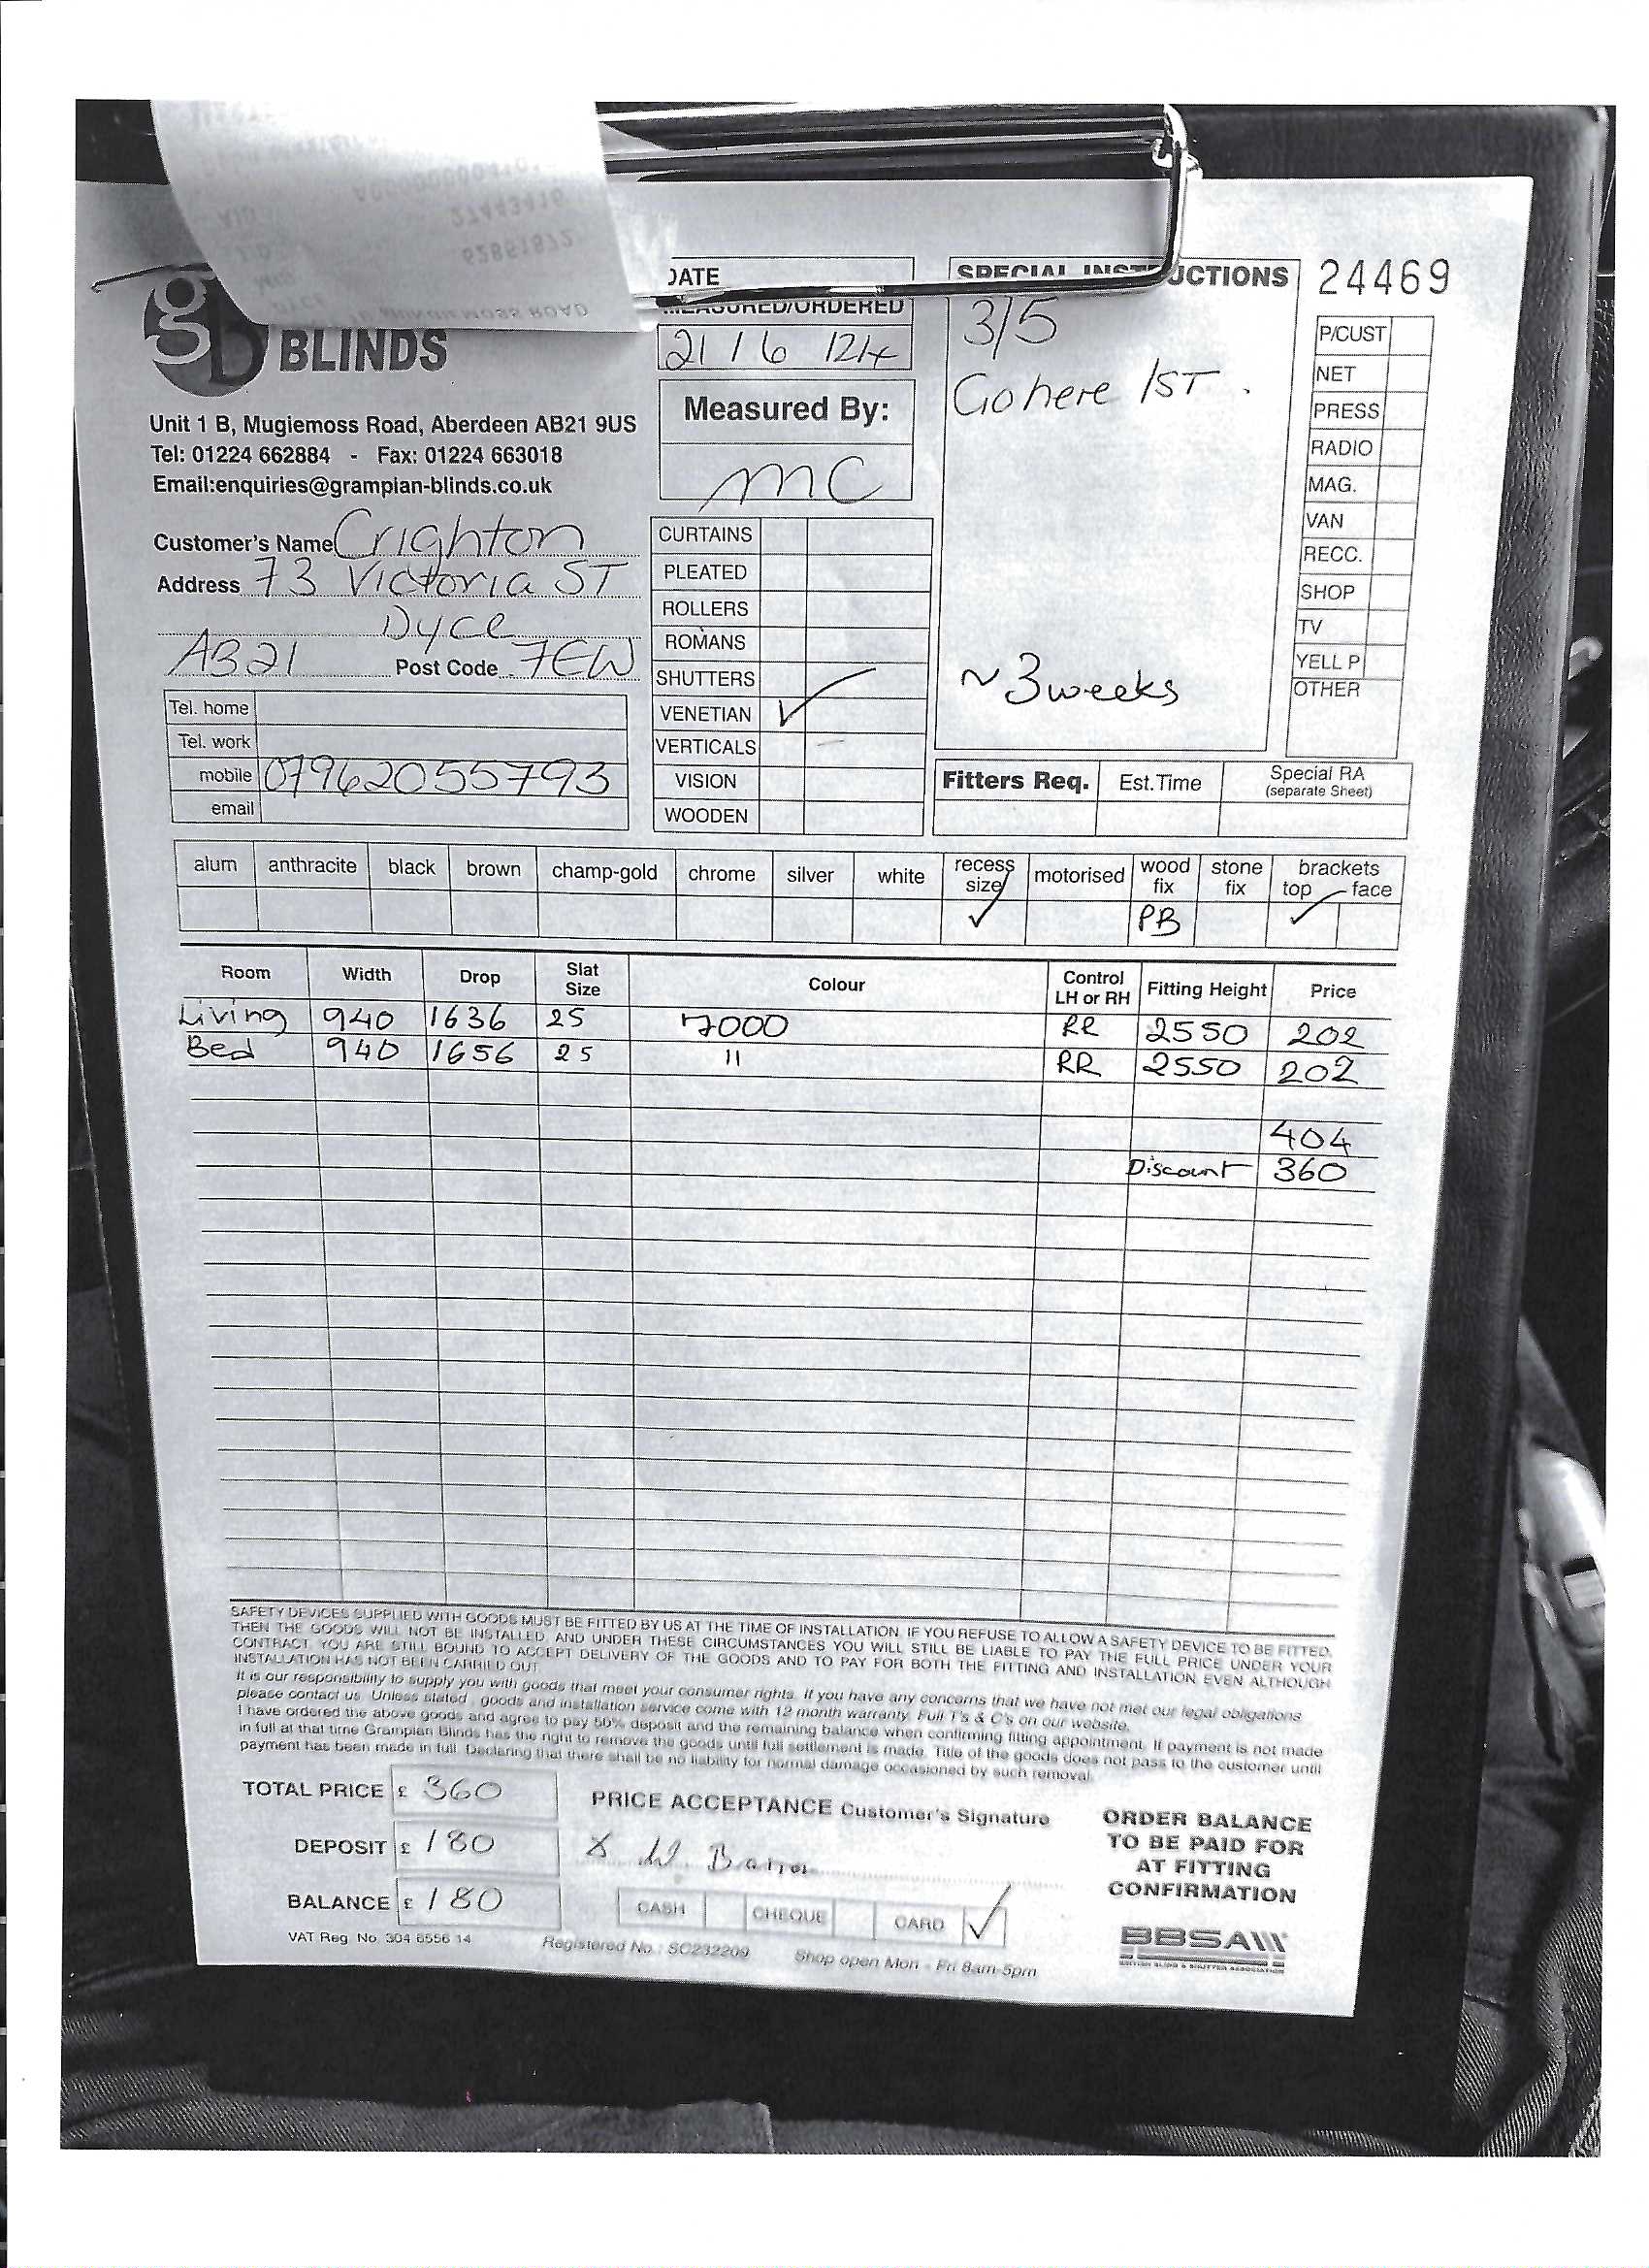 24469
DATE
MEASURED/ORDERED
21/6/24
SPECIAL INSTRUCTIONS
3/5
Go here 1ST.
~3weeks
gb
BLINDS
Unit 1 B, Mugiemoss Road, Aberdeen AB21 9US
Tel: 01224 662884 - Fax: 01224 663018
Email:enquiries@grampian-blinds.co.uk
Measured By:
MC
Customer's Name Crighton
Address 73 Victoria ST
Dyce
AB21 Post Code 7EW
Tel. home
Tel. work
mobile 07962055793
email
CURTAINS
PLEATED
ROLLERS
ROMANS
SHUTTERS
VENETIAN ✓
VERTICALS
VISION
WOODEN
P/CUST
NET
PRESS
RADIO
MAG.
VAN
RECC.
SHOP
TV
YELL P
OTHER
Fitters Req. Est.Time Special RA
(separate Sheet)
alum anthracite black brown champ-gold chrome silver white recess size motorised wood fix stone fix brackets top face
✓ PB ✓
Room Width Drop Slat Size Colour Control LH or RH Fitting Height Price
Living 940 1636 25 7000 RR 2550 202
Bed 940 1656 25 11 RR 2550 202
404
Discount 360
SAFETY DEVICES SUPPLIED WITH GOODS MUST BE FITTED BY US AT THE TIME OF INSTALLATION. IF YOU REFUSE TO ALLOW A SAFETY DEVICE TO BE FITTED,
THEN THE GOODS WILL NOT BE INSTALLED, AND UNDER THESE CIRCUMSTANCES YOU WILL STILL BE LIABLE TO PAY THE FULL PRICE UNDER YOUR
CONTRACT. YOU ARE STILL BOUND TO ACCEPT DELIVERY OF THE GOODS AND TO PAY FOR BOTH THE FITTING AND INSTALLATION EVEN ALTHOUGH
INSTALLATION HAS NOT BEEN CARRIED OUT
It is our responsibility to supply you with goods that meet your consumer rights. If you have any concerns that we have not met our legal obligations
please contact us. Unless stated goods and installation service come with 12 month warranty. Full T's & C's on our website.
I have ordered the above goods and agree to pay 50% deposit and the remaining balance when confirming fitting appointment. If payment is not made
in full at that time Grampian Blinds has the right to remove the goods until full settlement is made. Title of the goods does not pass to the customer until
payment has been made in full. Declaring that there shall be no liability for normal damage occasioned by such removal.
TOTAL PRICE £ 360
DEPOSIT £ 180
BALANCE £ 180
PRICE ACCEPTANCE Customer's Signature
X W. Barron
CASH CHEQUE CARD ✓
ORDER BALANCE
TO BE PAID FOR
AT FITTING
CONFIRMATION
VAT Reg. No. 304 6556 14
Registered No.: SC232209
Shop open Mon - Fri 8am-5pm
BBSA
BRITISH BLIND & SHUTTER ASSOCIATION